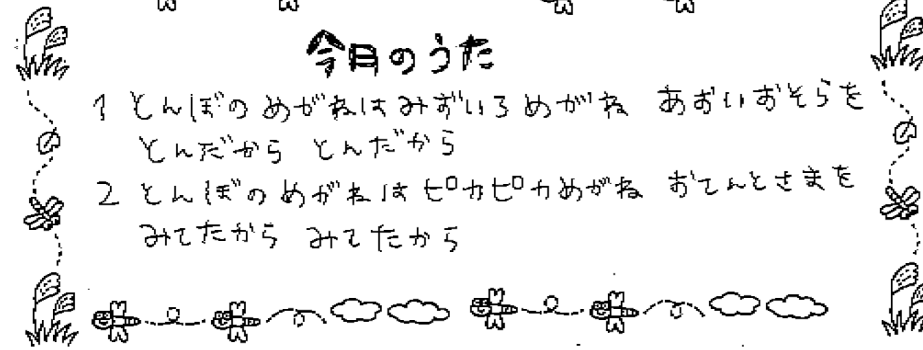 今月のうた
1 とんぼの めがねは みずいろ めがね あおいおそらを
とんだから とんだから
2 とんぼの めがねは ピカピカめがね おてんとさまを
みてたから みてたから